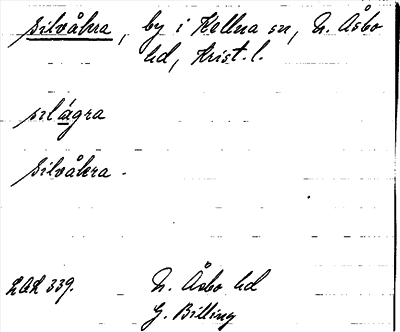 Silvåkra, by i Källna sn, N. Åsbo
hd, Krist. l.
silågra
Silvåkra.
LAL 339. N. Åsbo hd
G. Billing